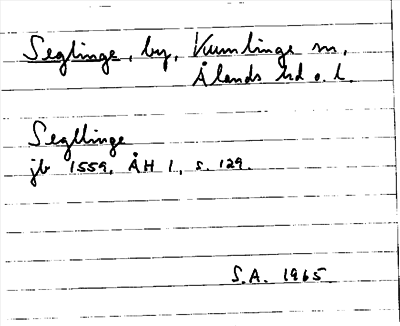 Seglinge, by, Kumlinge sn,
Ålands hd o. l.
Segllinge
jb 1559. ÅH 1, s. 129.
S.A. 1965